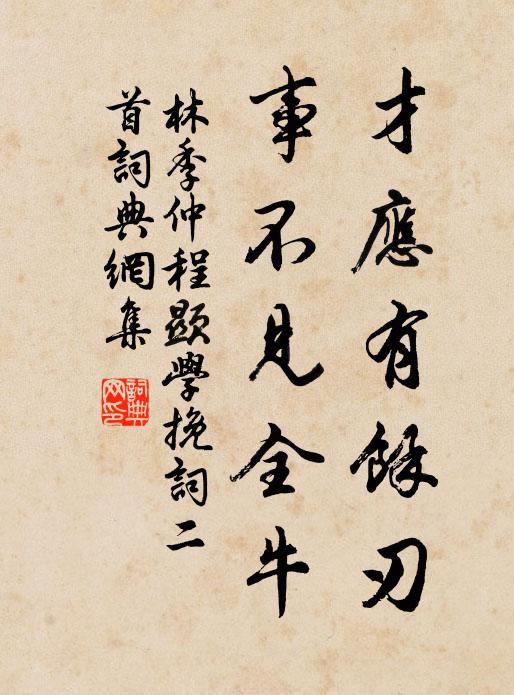 才應有餘刃
事不見全牛
林季仲程顯學挽詞二
首詞典網集
詞典
网印